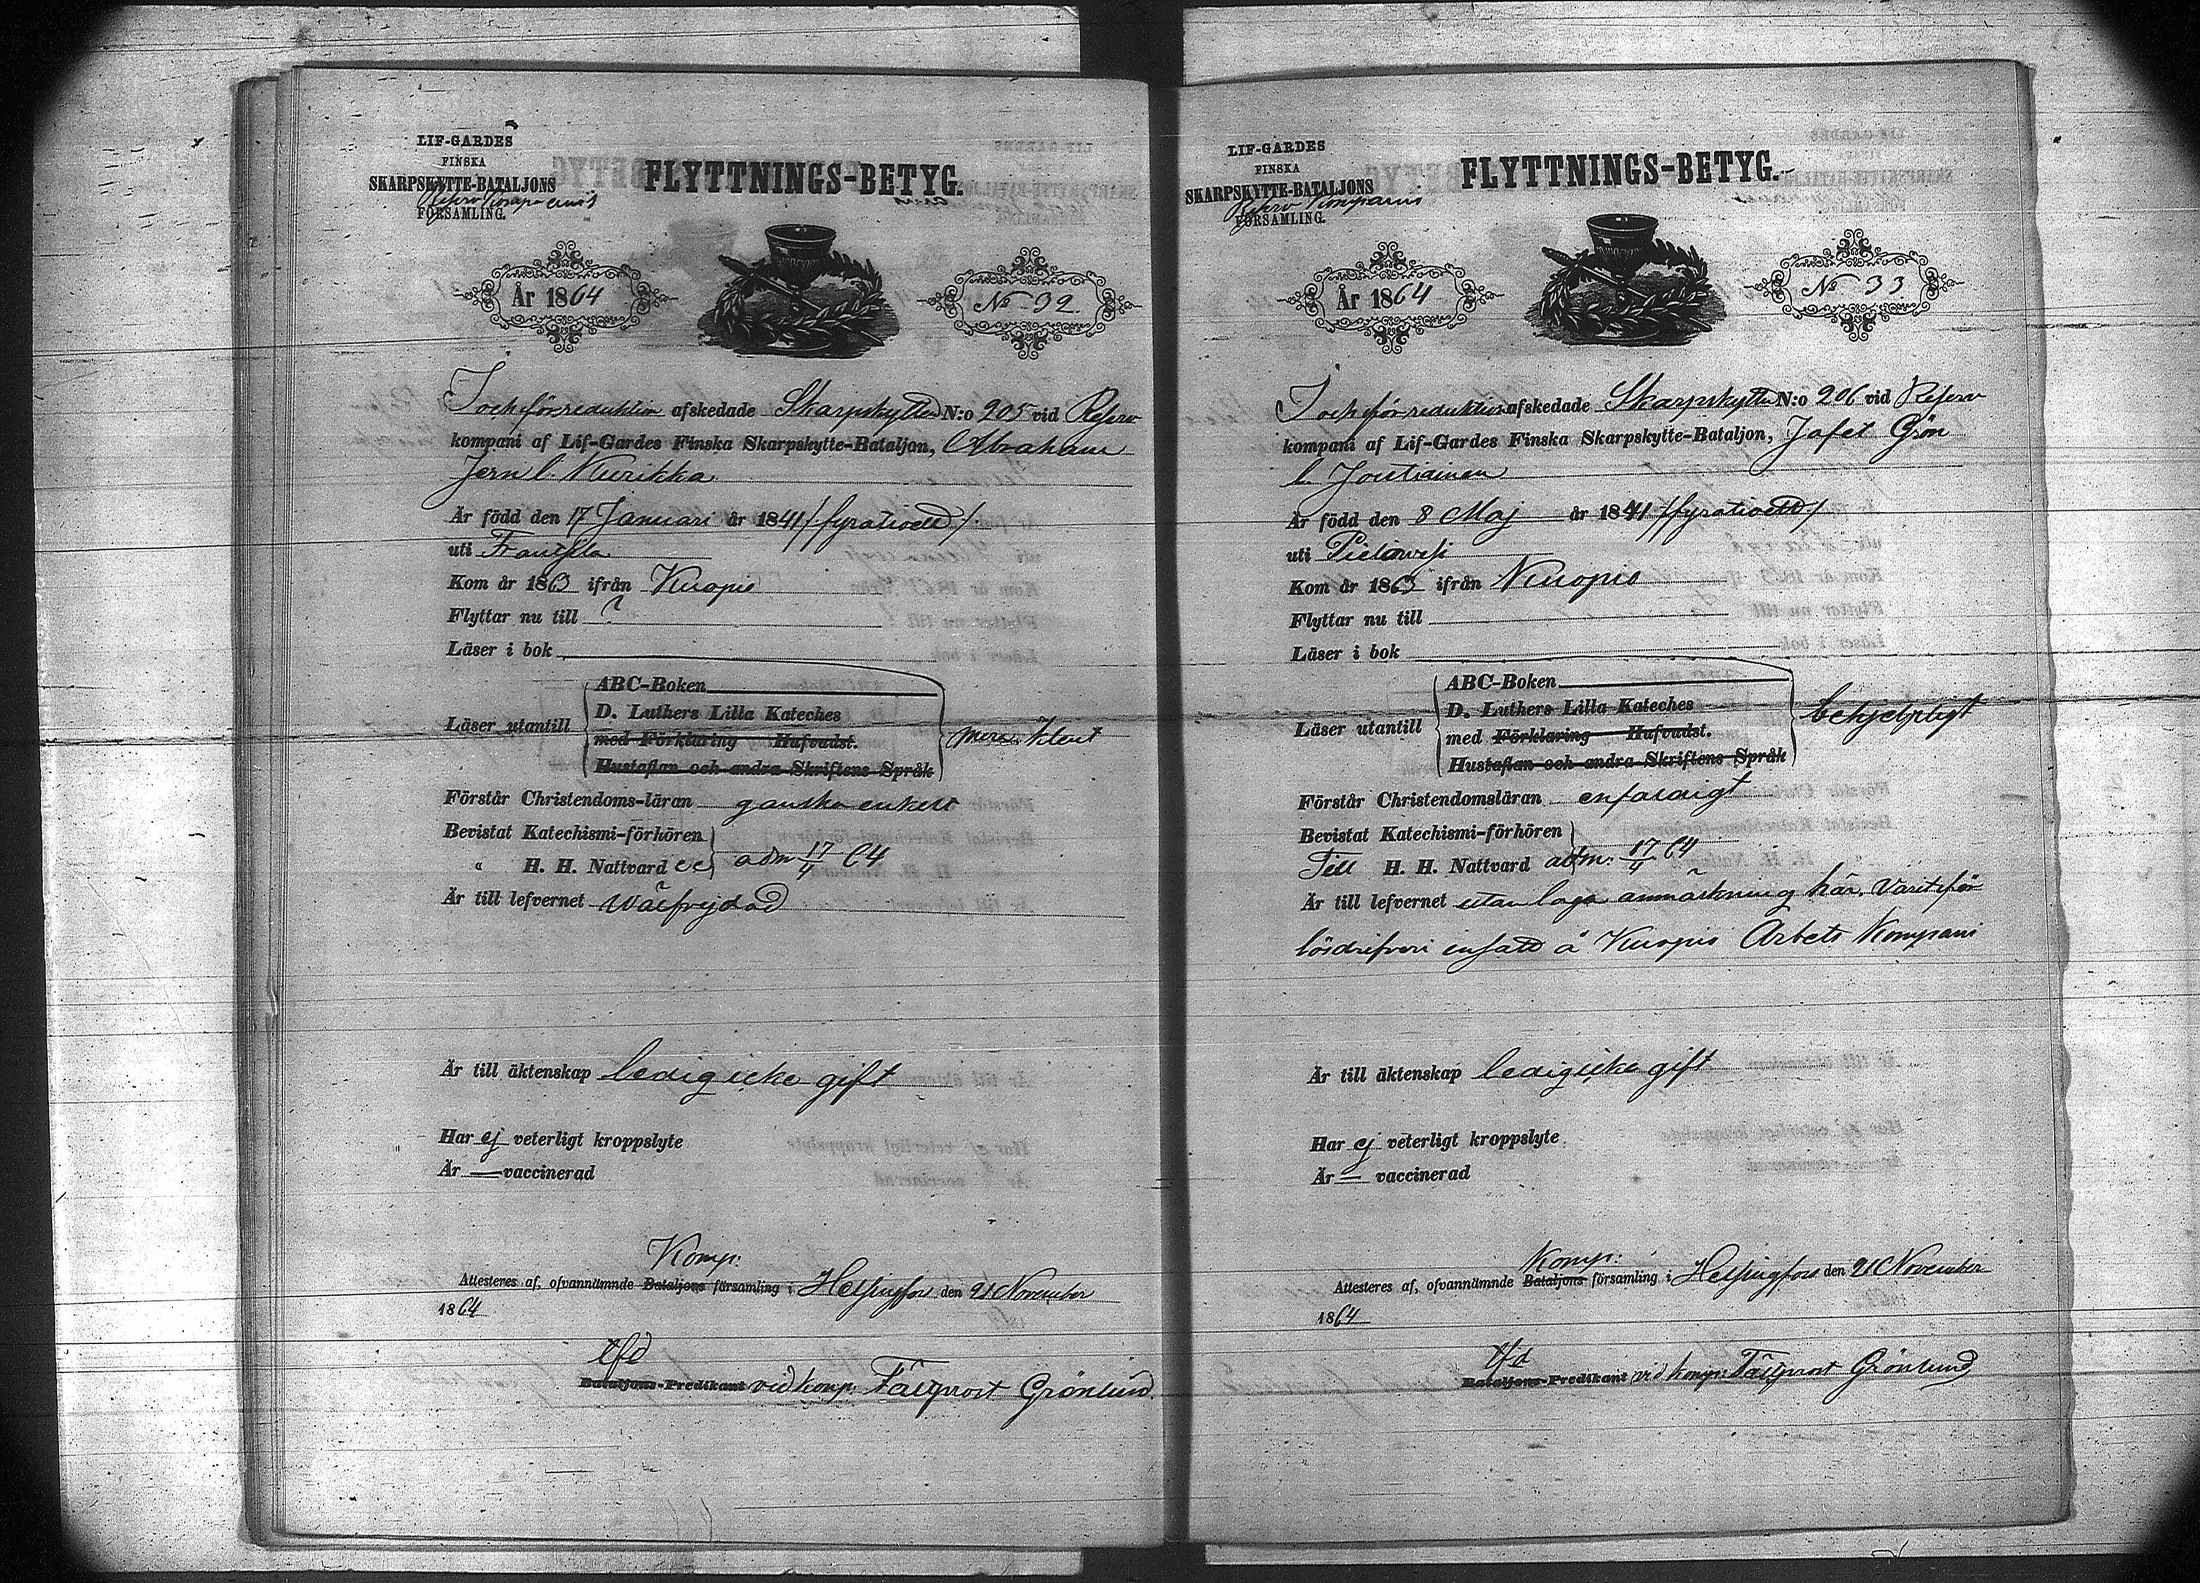 LIF-GARDES
FINSKA
SKARPSKYTTE-BATALJONS
FÖRSAMLING.
FLYTTNINGS-BETYG.
År 1864
No 32.
I och för reduktion afskedade Skarpskytten N:o 205 vid Reserv
kompani af Lif-Gardes Finska Skarpskytte-Bataljon, Abraham
Jern l. Kurikka
Är född den 17 Januari år 1841 /fyrationett/.
uti Frantsila
Kom år 1863 ifrån Kuopio
Flyttar nu till ?
Läser i bok
ABC-Boken
Läser utantill D. Luthers Lilla Kateches
med Förklaring Hufvudst.
Hustaflan och andra Skriftens Språk
klent
Förstår Christendoms-läran ganska enkelt
Bevistat Katechismi-förhören
" H. H. Nattvard adm 17/4 64
Är till lefvernet wälfrejdad
Är till äktenskap ledig icke gift
Har ej veterligt kroppslyte
Är — vaccinerad
Komp:
Attesteres af, ofvannämnde Bataljons församling i Helsingfors den 21 November
1864
Bataljons-Predikant vid komp: Fältprost Grönlund
LIF-GARDES
FINSKA
SKARPSKYTTE-BATALJONS
Reserv Kompanis
FÖRSAMLING.
FLYTTNINGS-BETYG.
År 1864
No 33
I och för reduktion afskedade Skarpskytten N:o 206 vid Reserv
kompani af Lif-Gardes Finska Skarpskytte-Bataljon, Jafet Grön
l. Joutiainen
Är född den 8 Maj år 1841 /fyrationett/
uti Pielavesi
Kom år 1863 ifrån Kuopio
Flyttar nu till
Läser i bok
ABC-Boken
Läser utantill D. Luthers Lilla Kateches
med Förklaring Hufvudst.
Hustaflan och andra Skriftens Språk
behjelpligt
Förstår Christendomsläran enfaldigt
Bevistat Katechismi-förhören
Till H. H. Nattvard adm. 17/4 64
Är till lefvernet utan laga anmärkning här. Varit för
lösdrifveri insatt å Kuopio Arbets Kompani
Är till äktenskap ledig icke gift
Har ej veterligt kroppslyte
Är — vaccinerad
Komp:
Attesteres af, ofvannämnde Bataljons församling i Helsingfors den 21 November
1864
Bataljons-Predikant vid komp: Fältprost Grönlund